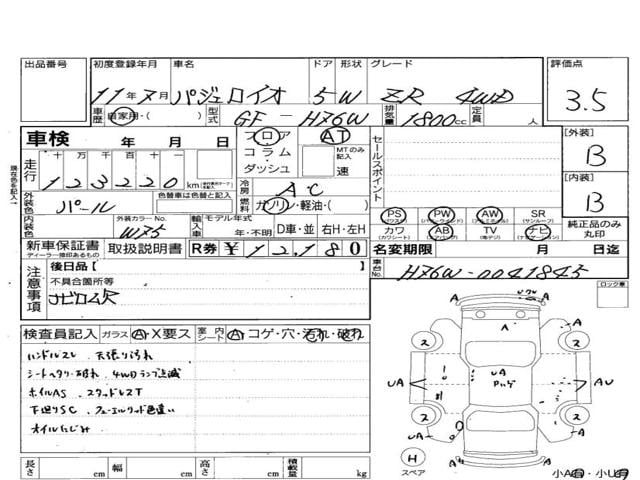 出品番号 初度登録年月 車名 ドア 形状 グレード 評価点
11年7月 パジェロイオ 5W ZR 4WD 3.5
車歴 自家用・( ) 型式 GF-H76W 排気量 1800cc 定員 人
車検 年 月 日 フロア AT
コラム・ダッシュ MTのみ記入 速
セールスポイント
[外装] B
走行 十 万 千 百 十 一
123220 km
冷房 AC
[内装] B
外装色 パール 色替車は色替と記入 燃料 ガソリン・軽油・( )
PS PW AW SR
(サンルーフ)
純正品のみ丸印
内装色 外装カラーNo. W75 輸入車 モデル年式 年・不明 D車・並 右H・左H
カワ AB TV ナビ
新車保証書 取扱説明書 R券 ¥12,180
ディーラー捺印あるもの
名変期限 月 日迄
車台No. H76W-0041845
注意事項 後日品【 】
不具合箇所等
ナビロム欠
ロック車
検査員記入 ガラス A・X要ス 室内シート A・コゲ・穴・汚れ・破れ
ハンドルスレ、天張り汚れ
シートヘタリ・破れ、4WDランプ点滅
ホイルAS、スタッドレスT
下廻りSC、フューエルリッド色違い
オイルにじみ
A A
A A
ス ス
UA UA AU
ス ス
UA A A
H
スペア
A A
小A有・小U有
長さ cm 幅 cm 高さ cm 積載量 kg